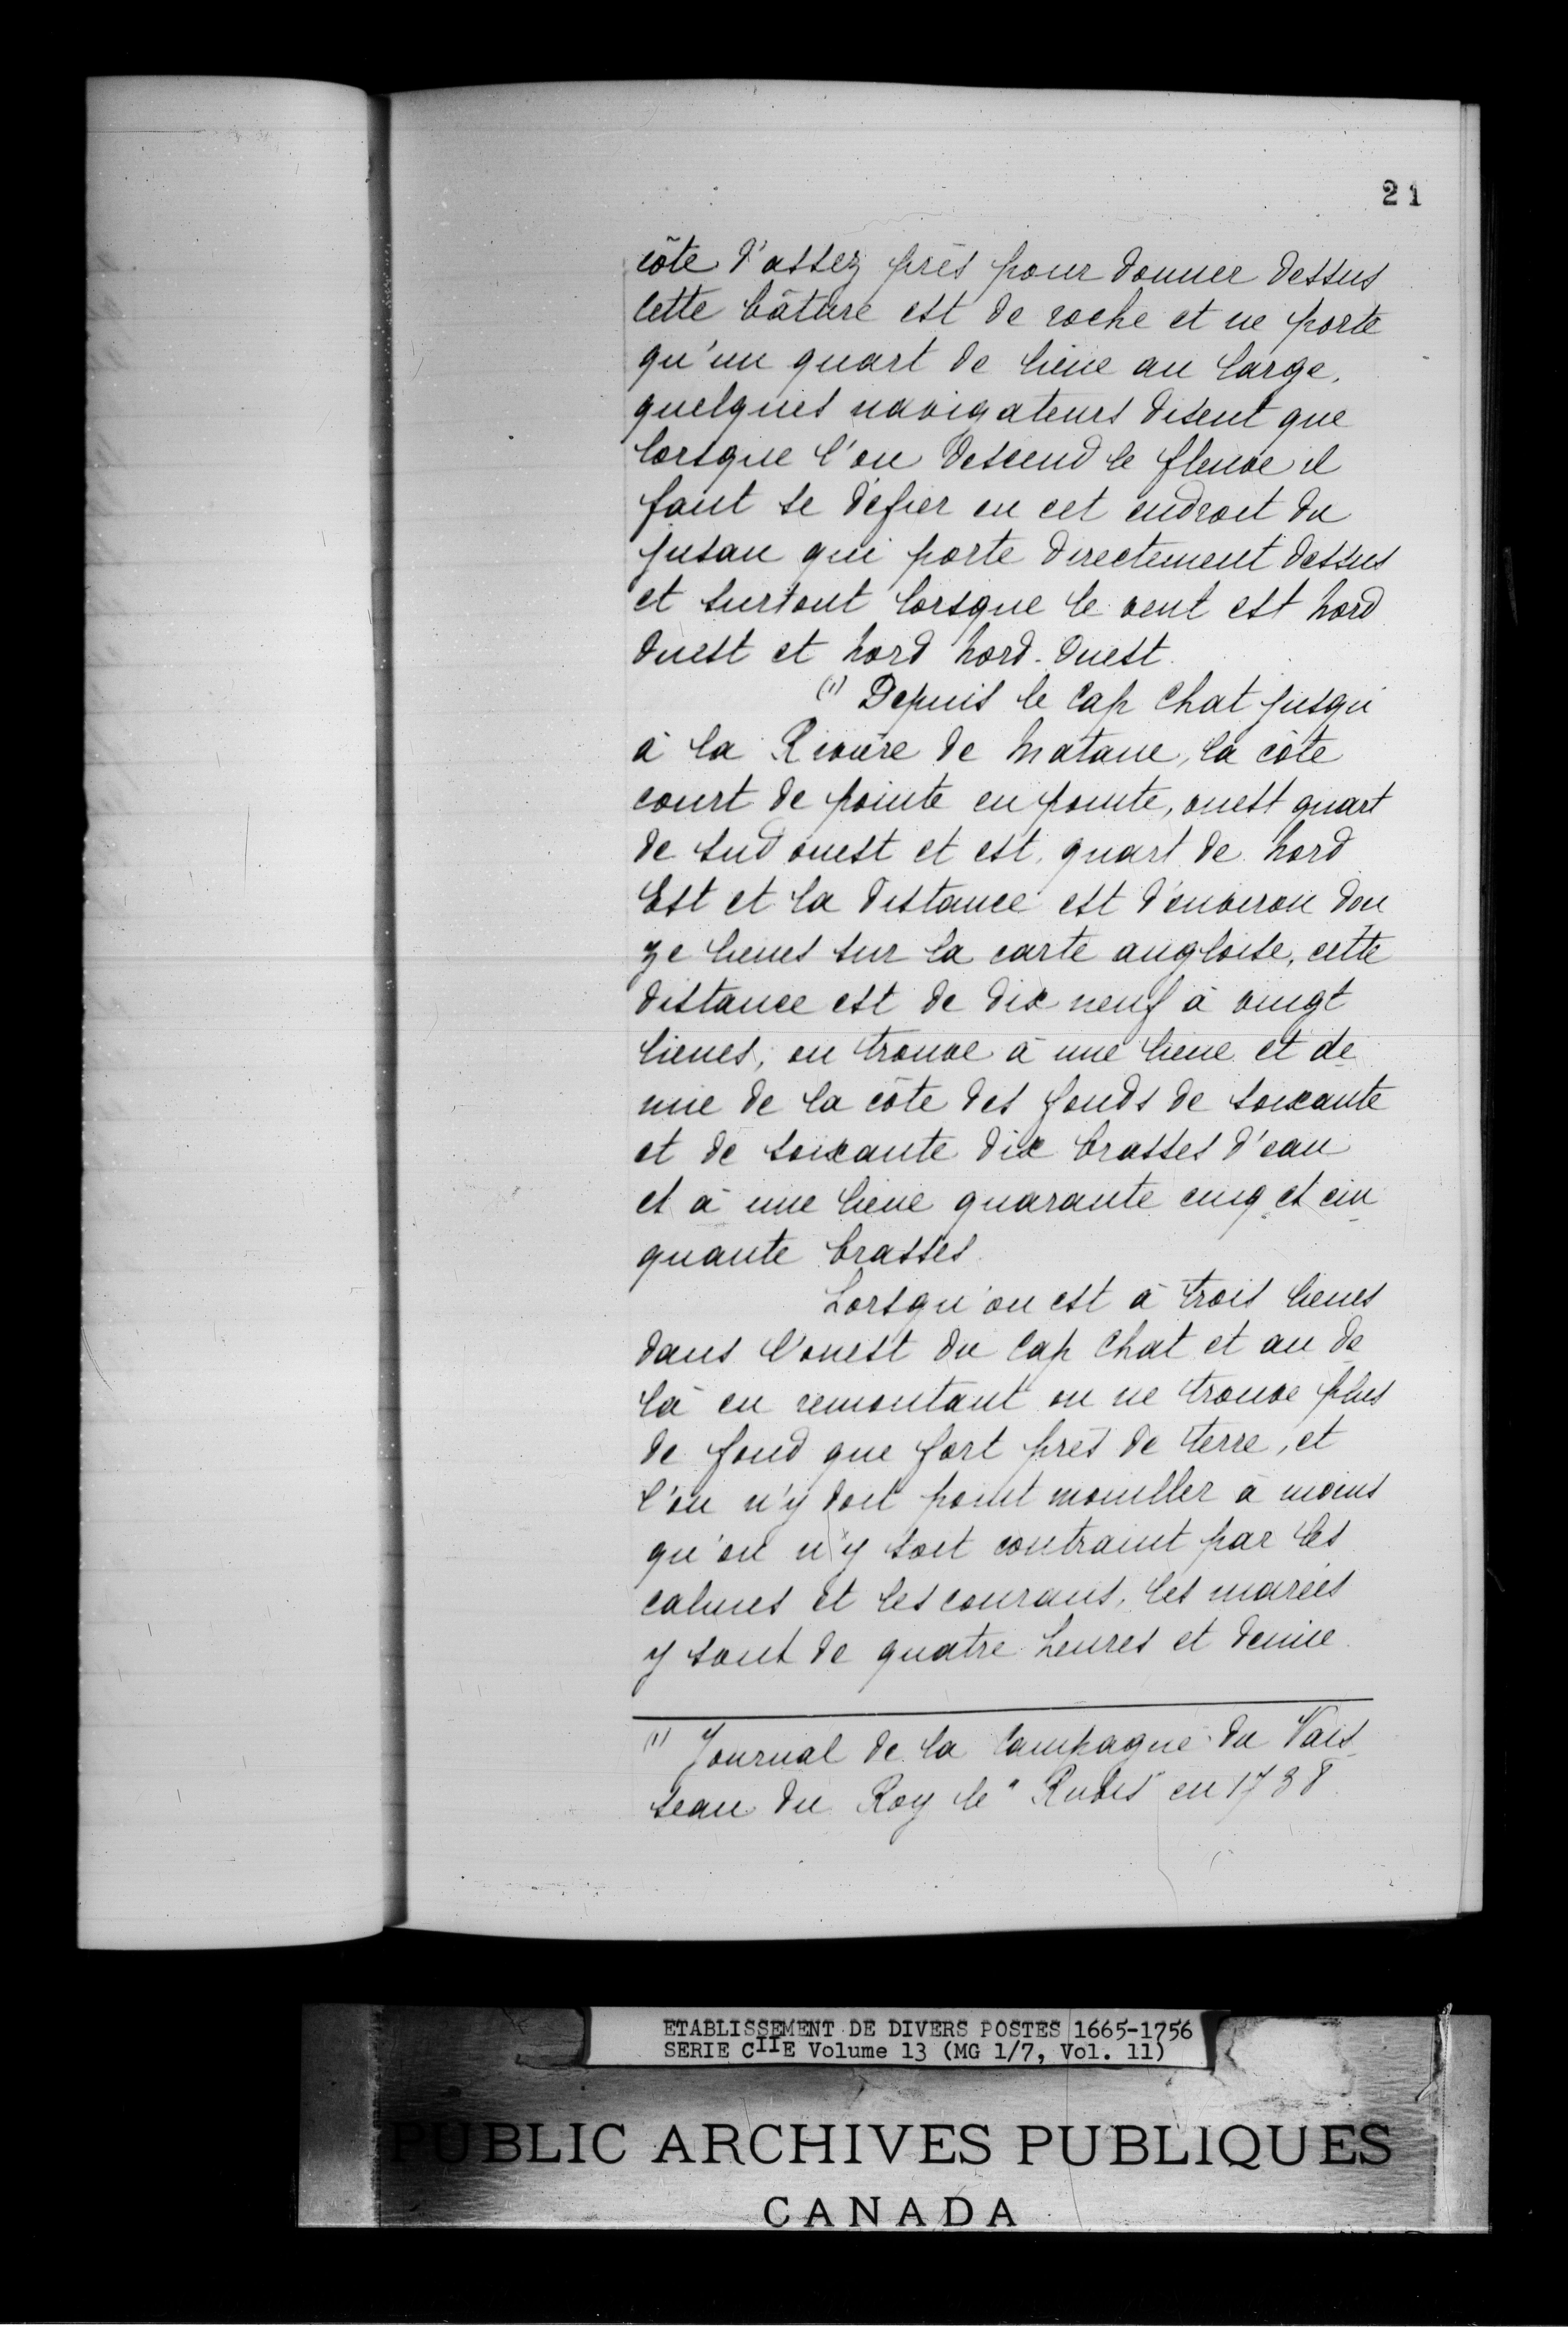 21
côte d'assez près pour donner dessus
cette bâture est de roche et ne porte
qu'un quart de lieue au large,
quelques navigateurs disent que
lorsque l'on descend le fleuve il
faut se défier en cet endroit du
jusan qui porte directement dessus
et surtout lorsque le vent est nord
ouest et nord nord-ouest.
(1) Depuis le Cap Chat jusqu'
à la Rivière de Matane, la côte
court de pointe en pointe, ouest quart
de sud ouest et est, quart de nord
Est et la distance est d'environ dou
ze lieues sur la carte angloise, cette
distance est de dix neuf à vingt
lieues, on trouve à une lieue et de-
mie de la côte des fonds de soixante
et de soixante dix brasses d'eau
et à une lieue quarante cinq et cin-
quante brasses.
Lorsqu'on est à trois lieues
dans l'ouest du Cap Chat et au de-
là en remontant on ne trouve plus
de fond que fort près de terre, et
l'on n'y doit point mouiller à moins
qu'on n'y soit contraint par les
calmes et les courans, les marées
y sont de quatre heures et demie.
(1) Journal de la Campagne du Vais-
seau du Roy le "Rubis" en 1738.
ETABLISSEMENT DE DIVERS POSTES 1665-1756
SERIE CIIE Volume 13 (MG 1/7, Vol. 11)
PUBLIC ARCHIVES PUBLIQUES
CANADA